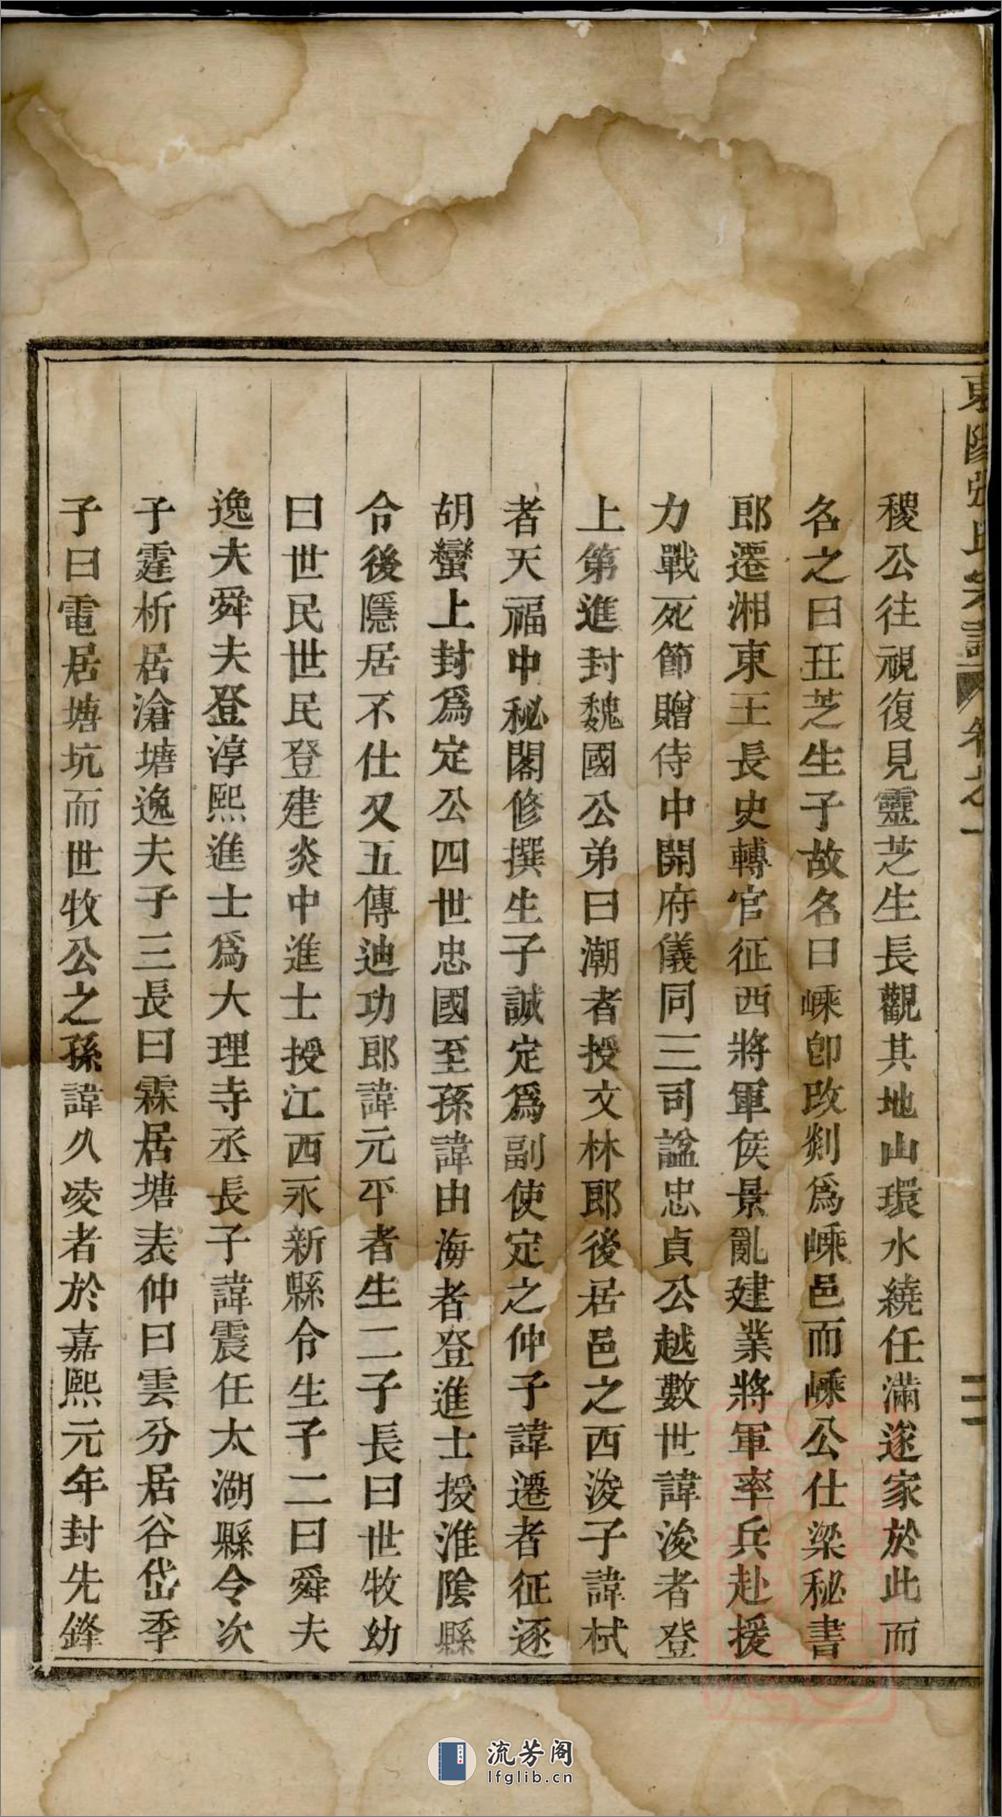 東陽張氏宗譜 卷之一
稷公往視復見靈芝生長觀其地山環水繞任滿遂家於此而
名之曰玨芝生子故名曰嵊卽改剡爲嵊邑而嵊公仕梁秘書
郎遷湘東王長史轉官征西將軍侯景亂建業將軍率兵赴援
力戰死節贈侍中開府儀同三司諡忠貞公越數世諱浚者登
上第進封魏國公弟曰潮者授文林郎後居邑之西浚子諱栻
者天福中秘閣修撰生子誠定爲副使定之仲子諱遷者征逐
胡蠻上封爲定公四世忠國至孫諱由海者登進士授淮陰縣
令後隱居不仕又五傳迪功郎諱元平者生二子長曰世牧幼
曰世民世民登建炎中進士授江西永新縣令生子二曰舜夫
逸夫舜夫登淳熙進士爲大理寺丞長子諱震任太湖縣令次
子霆析居滄塘逸夫子三長曰霖居塘表仲曰雲分居谷岱季
子曰電居塘坑而世牧公之孫諱久凌者於嘉熙元年封先鋒
流芳阁
lfglib.cn